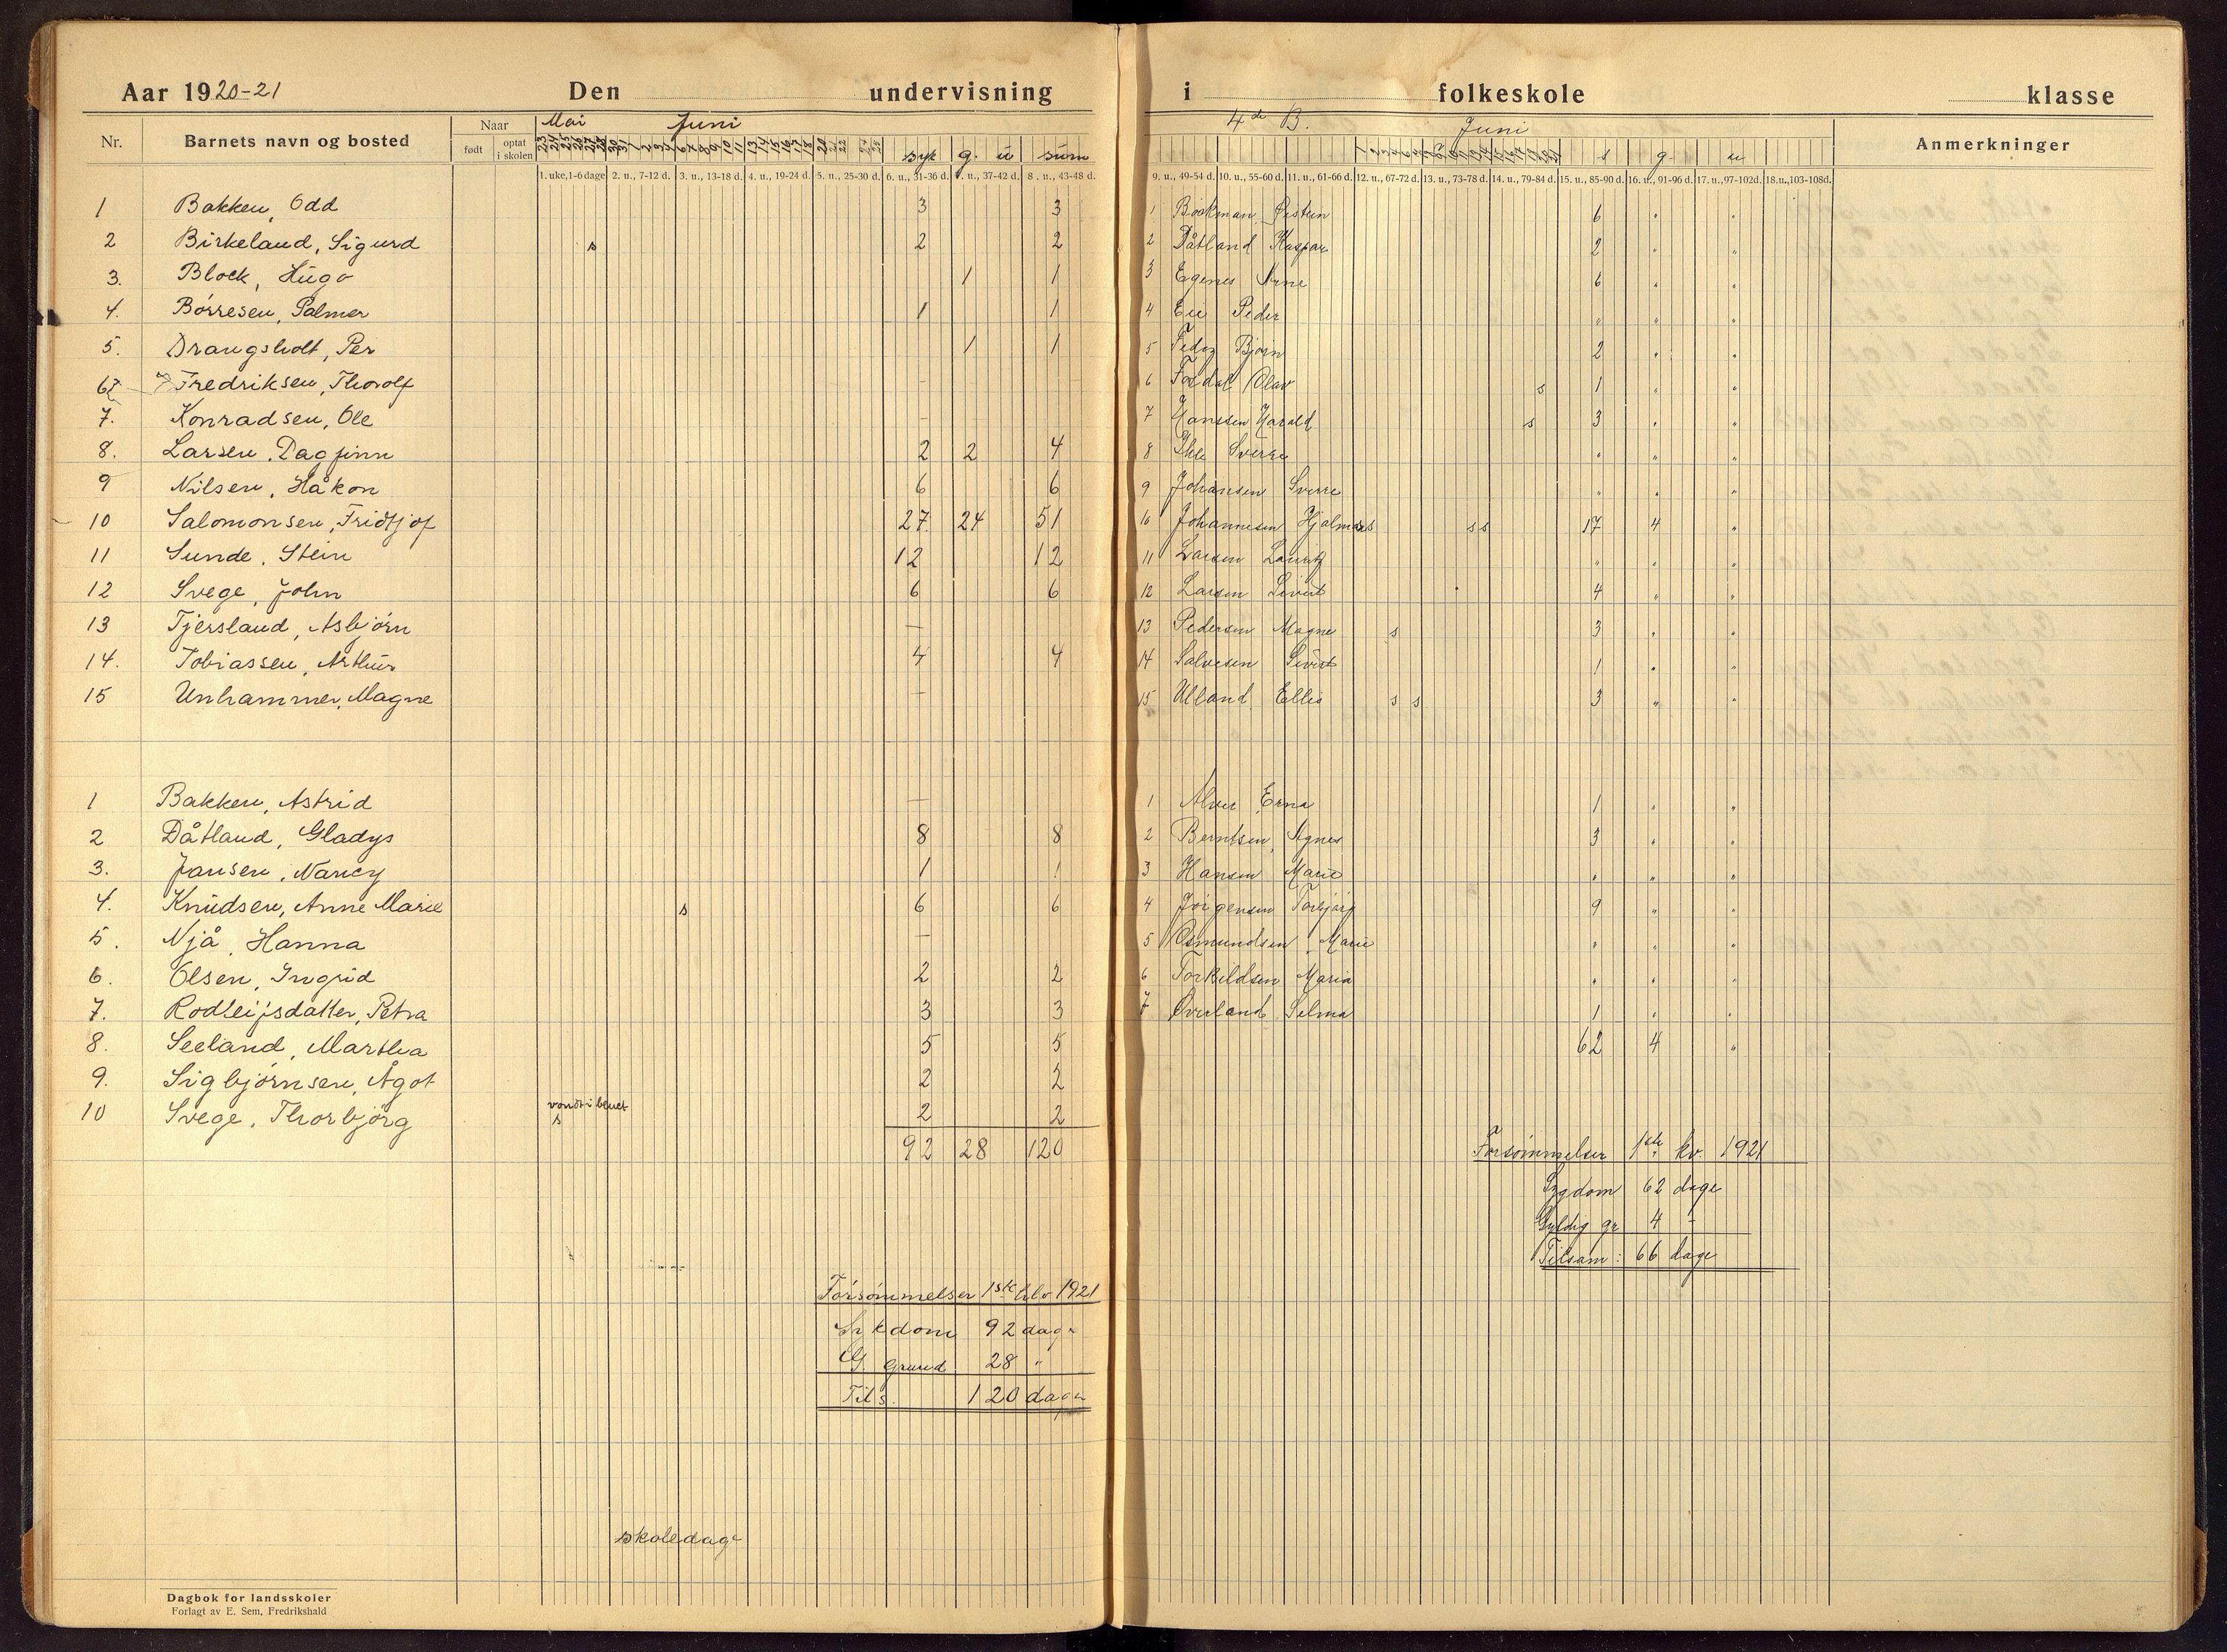 Aar 1920-21 Den undervisning
Nr. Barnets navn og bosted Naar født optat i skolen Mai Juni syk g. u sum
1. uke, 1-6 dage 2. u., 7-12 d. 3. u., 13-18 d. 4. u., 19-24 d. 5. u., 25-30 d. 6. u., 31-36 d. 7. u., 37-42 d. 8. u., 43-48 d.
1 Bakken, Odd 3 3
2 Birkeland, Sigurd s 2 2
3. Block, Hugo 1 1
4. Börresen, Palmer 1 1
5. Drangsholt, Per 1 1
6 Fredriksen, Thorolf —
7. Konradsen, Ole —
8. Larsen, Dagfinn 2 2 4
9 Nilsen, Håkon 6 6
10 Salomonsen, Fridtjof 27 24 51
11 Sunde, Stein 12 12
12 Svege, John 6 6
13 Tjersland, Asbjörn —
14. Tobiassen, Arthur 4 4
15 Unhammer, Magne —
1 Bakken, Astrid —
2 Dåtland, Gladys 8 8
3. Jansen, Nancy 1 1
4. Knudsen, Anne Marie s 6 6
5. Njå, Hanna —
6. Olsen, Ingrid 2 2
7. Rodleifsdatter, Petra 3 3
8. Seeland, Martha 5 5
9. Sigbjörnsen, Ågot 2 2
10 Svege, Thorbjörg vondt i benet s 2 2
92 28 120
Forsömmelser 1ste hlv 1921
Sykdom 92 dage
G. grund 28 "
Tils. 120 dage
skoledage
Dagbok for landsskoler
Forlagt av E. Sem, Fredrikshald
i folkeskole klasse
4de B. Juni s g. u Anmerkninger
9. u., 49-54 d. 10. u., 55-60 d. 11. u., 61-66 d. 12. u., 67-72 d. 13. u., 73-78 d. 14. u., 79-84 d. 15. u., 85-90 d. 16. u., 91-96 d. 17. u., 97-102d. 18.u.,103-108d.
1 Bockman, Østein 6 " "
2 Dåtland Kaspar 2 " "
3 Egenes Arne 6 " "
4 Eie Peder " " "
5 Bjørn 2 " "
6 Olav s 1 " "
7 Hanssen Harald s 3 " "
8 Ihle Sverre " " "
9 Johansen Sverre " " "
10 Johannesen Hjalmar s s s 17 4 "
11 Larsen Lauritz " " "
12 Larsen Sivert 4 " "
13 Pedersen Magne s 3 " "
14 Salvesen Sivert 1 " "
15 Ulland Ellis s s 3 " "
1 Alver Erna 1 " "
2 Berntsen, Agnes 3 " "
3 Hansen Marie " " "
4 Jörgensen Torbjörg 9 " "
5 Osmundsen Marie " " "
6 Torkildsen Maria " " "
7 Øverland Selma 1 " "
62 4 "
Forsömmelser 1ste kv. 1921
Sygdom 62 dage
Gyldig gr 4 -
Tilsam: 66 dage